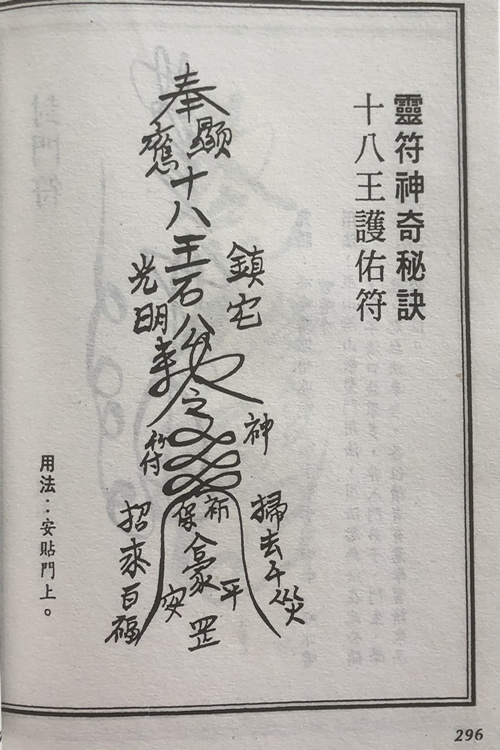 靈符神奇秘訣
十八王護佑符
奉
顯應
十八王石公
鎮宅
光明
敕令
神符
祈保
平安
掃去千災
招來百福
罡
用法：安貼門上。
296